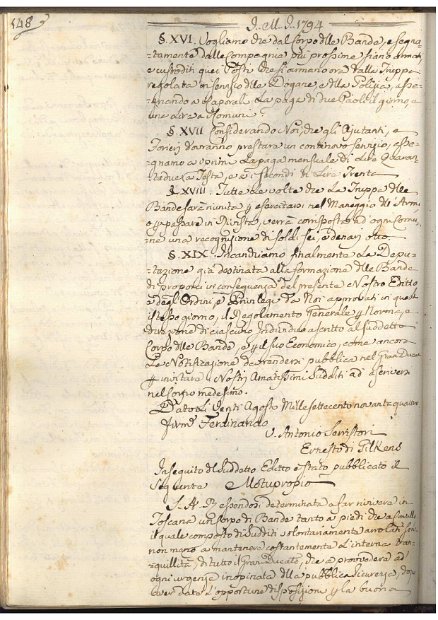 148
J. M. J. 1794
§. XVI. Vogliamo che dal Corpo delle Bande, e segna-
tamente dalle Compagnie più prossime siano armati
e custoditi quei Posti che si armano ora dalla Truppa
regolata in sensio delle Dogane, e della Polizia, asse-
gnando a Caporali la paga di due Paoli il giorno e
una lira a Comuni.
§. XVII. Considerando Noi, che gli Ajutanti, e
Forieri dovranno prestare un continovo servizio, asse-
gnamo ai primi la paga mensuale di Lire Quaran-
tadue a Testa, e ai secondi di Lire Trenta
§. XVIII. Tutte le volte che la Truppa delle
Bande sarà riunita per esercitarsi nel Maneggio dell'Armi
o per passare in Rivista, verrà corrisposto ad ogni Comu-
ne una recognizione di soldi sei, e denari otto
§. XIX. Mandiamo finalmente a la Depu-
tazione già destinata alla formazione delle Bande
di proporci in conseguenza del presente Nostro Editto
e degli Ordini, e Privilegi da Noi approvati in quest'
istesso giorno, il Regolamento Generale per Norma, e
direzione di ciascun Individuo ascritto al suddetto
Corpo delle Bande, e per il suo Economico, come ancora
la Notificazione da rendersi pubblica nel Gran Ducato
per invitare i Nostri Amatissimi Sudditi ad ascriversi
nel Corpo medesimo.
Dato li Venti Agosto Millesettecentonovantaquattro
Firm.° Ferdinando
V. Antonio Serristori
Ernesto di Gilkens
In seguito del suddetto Editto è stato pubblicato il
seguente Motuproprio
S. A. R. essendosi determinata a far rivivere in
Toscana un Corpo di Bande tanto a piedi che a Cavallo
il quale composto di sudditi volontariamente arrolati servi
non meno a mantenere costantemente l'interna tran-
quillità di tutto il Gran Ducato, che a provvedere ad
ogni urgenza inopinata della pubblica sicurezza, dopo
aver data l'opportune disposizioni per la buona